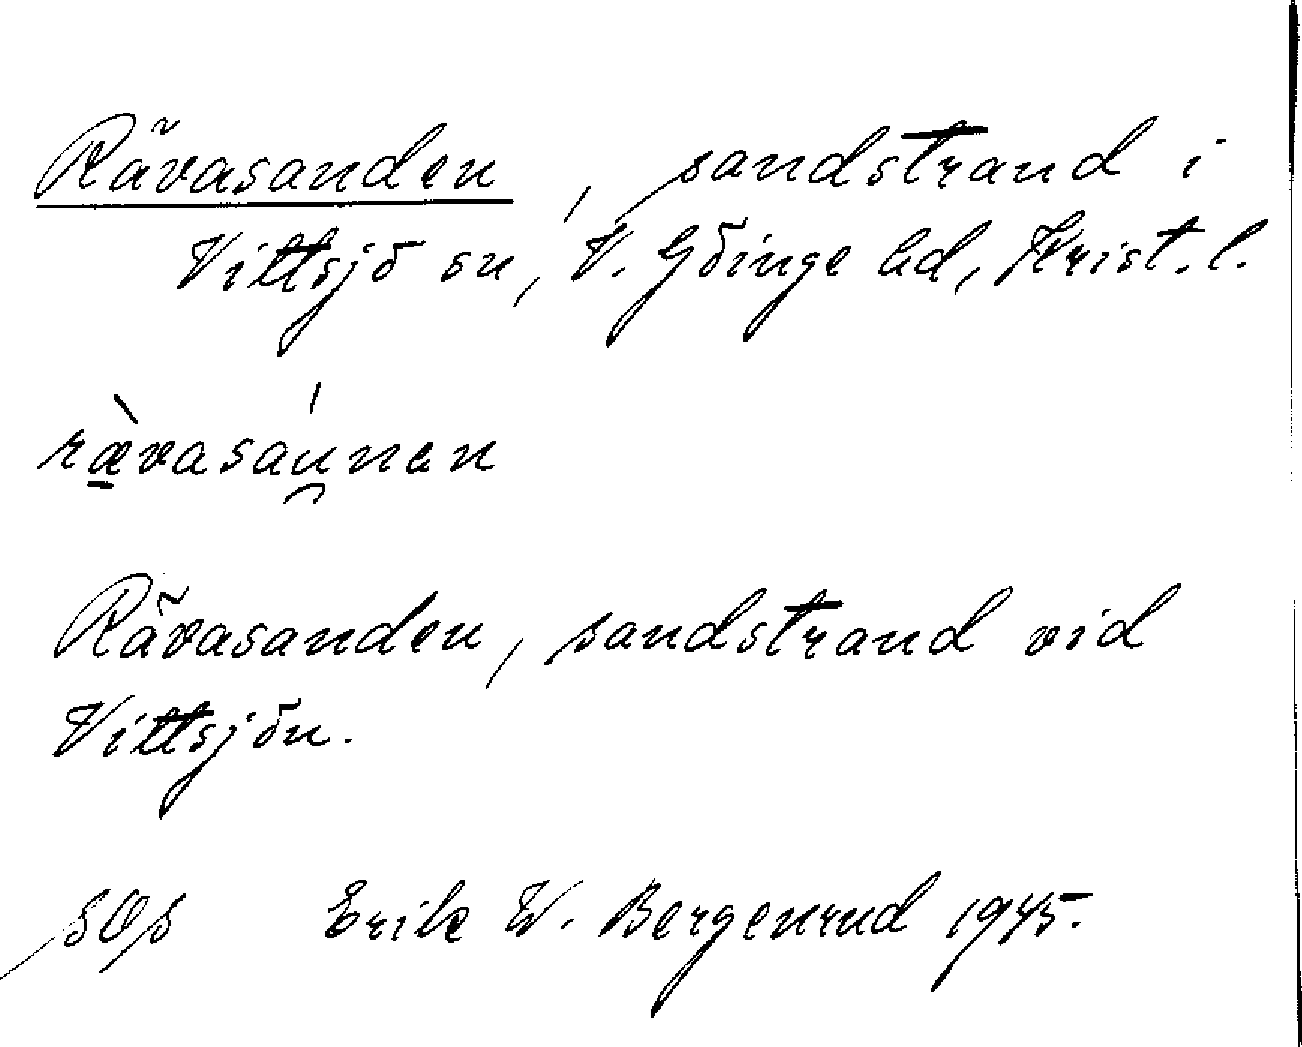 Rävasanden, sandstrand i
Vittsjö sn, V. Göinge hd, Krist. l.
rævasaunen
Rävasanden, sandstrand vid
Vittsjön.
SOs Erik W. Bergenrud 1945.